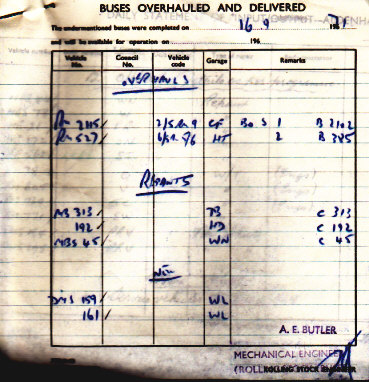 BUSES OVERHAULED AND DELIVERED
The undermentioned buses were completed on 16.9 1971
and will be available for operation on 196
Vehicle No. Council No. Vehicle code Garage Remarks
OVERHAULS
RM 2115/ 2/5 RM 9 CF Bo S 1 B 2102
RM 527/ HT 2 B 385
REPAINTS
MB 313/ TB C 313
192/ HD C 192
MBS 45/ WN C 45
NEW
DMS 159/ WL
161/ WL
A. E. BUTLER
MECHANICAL ENGINEER
ROLLING STOCK ENGINEER